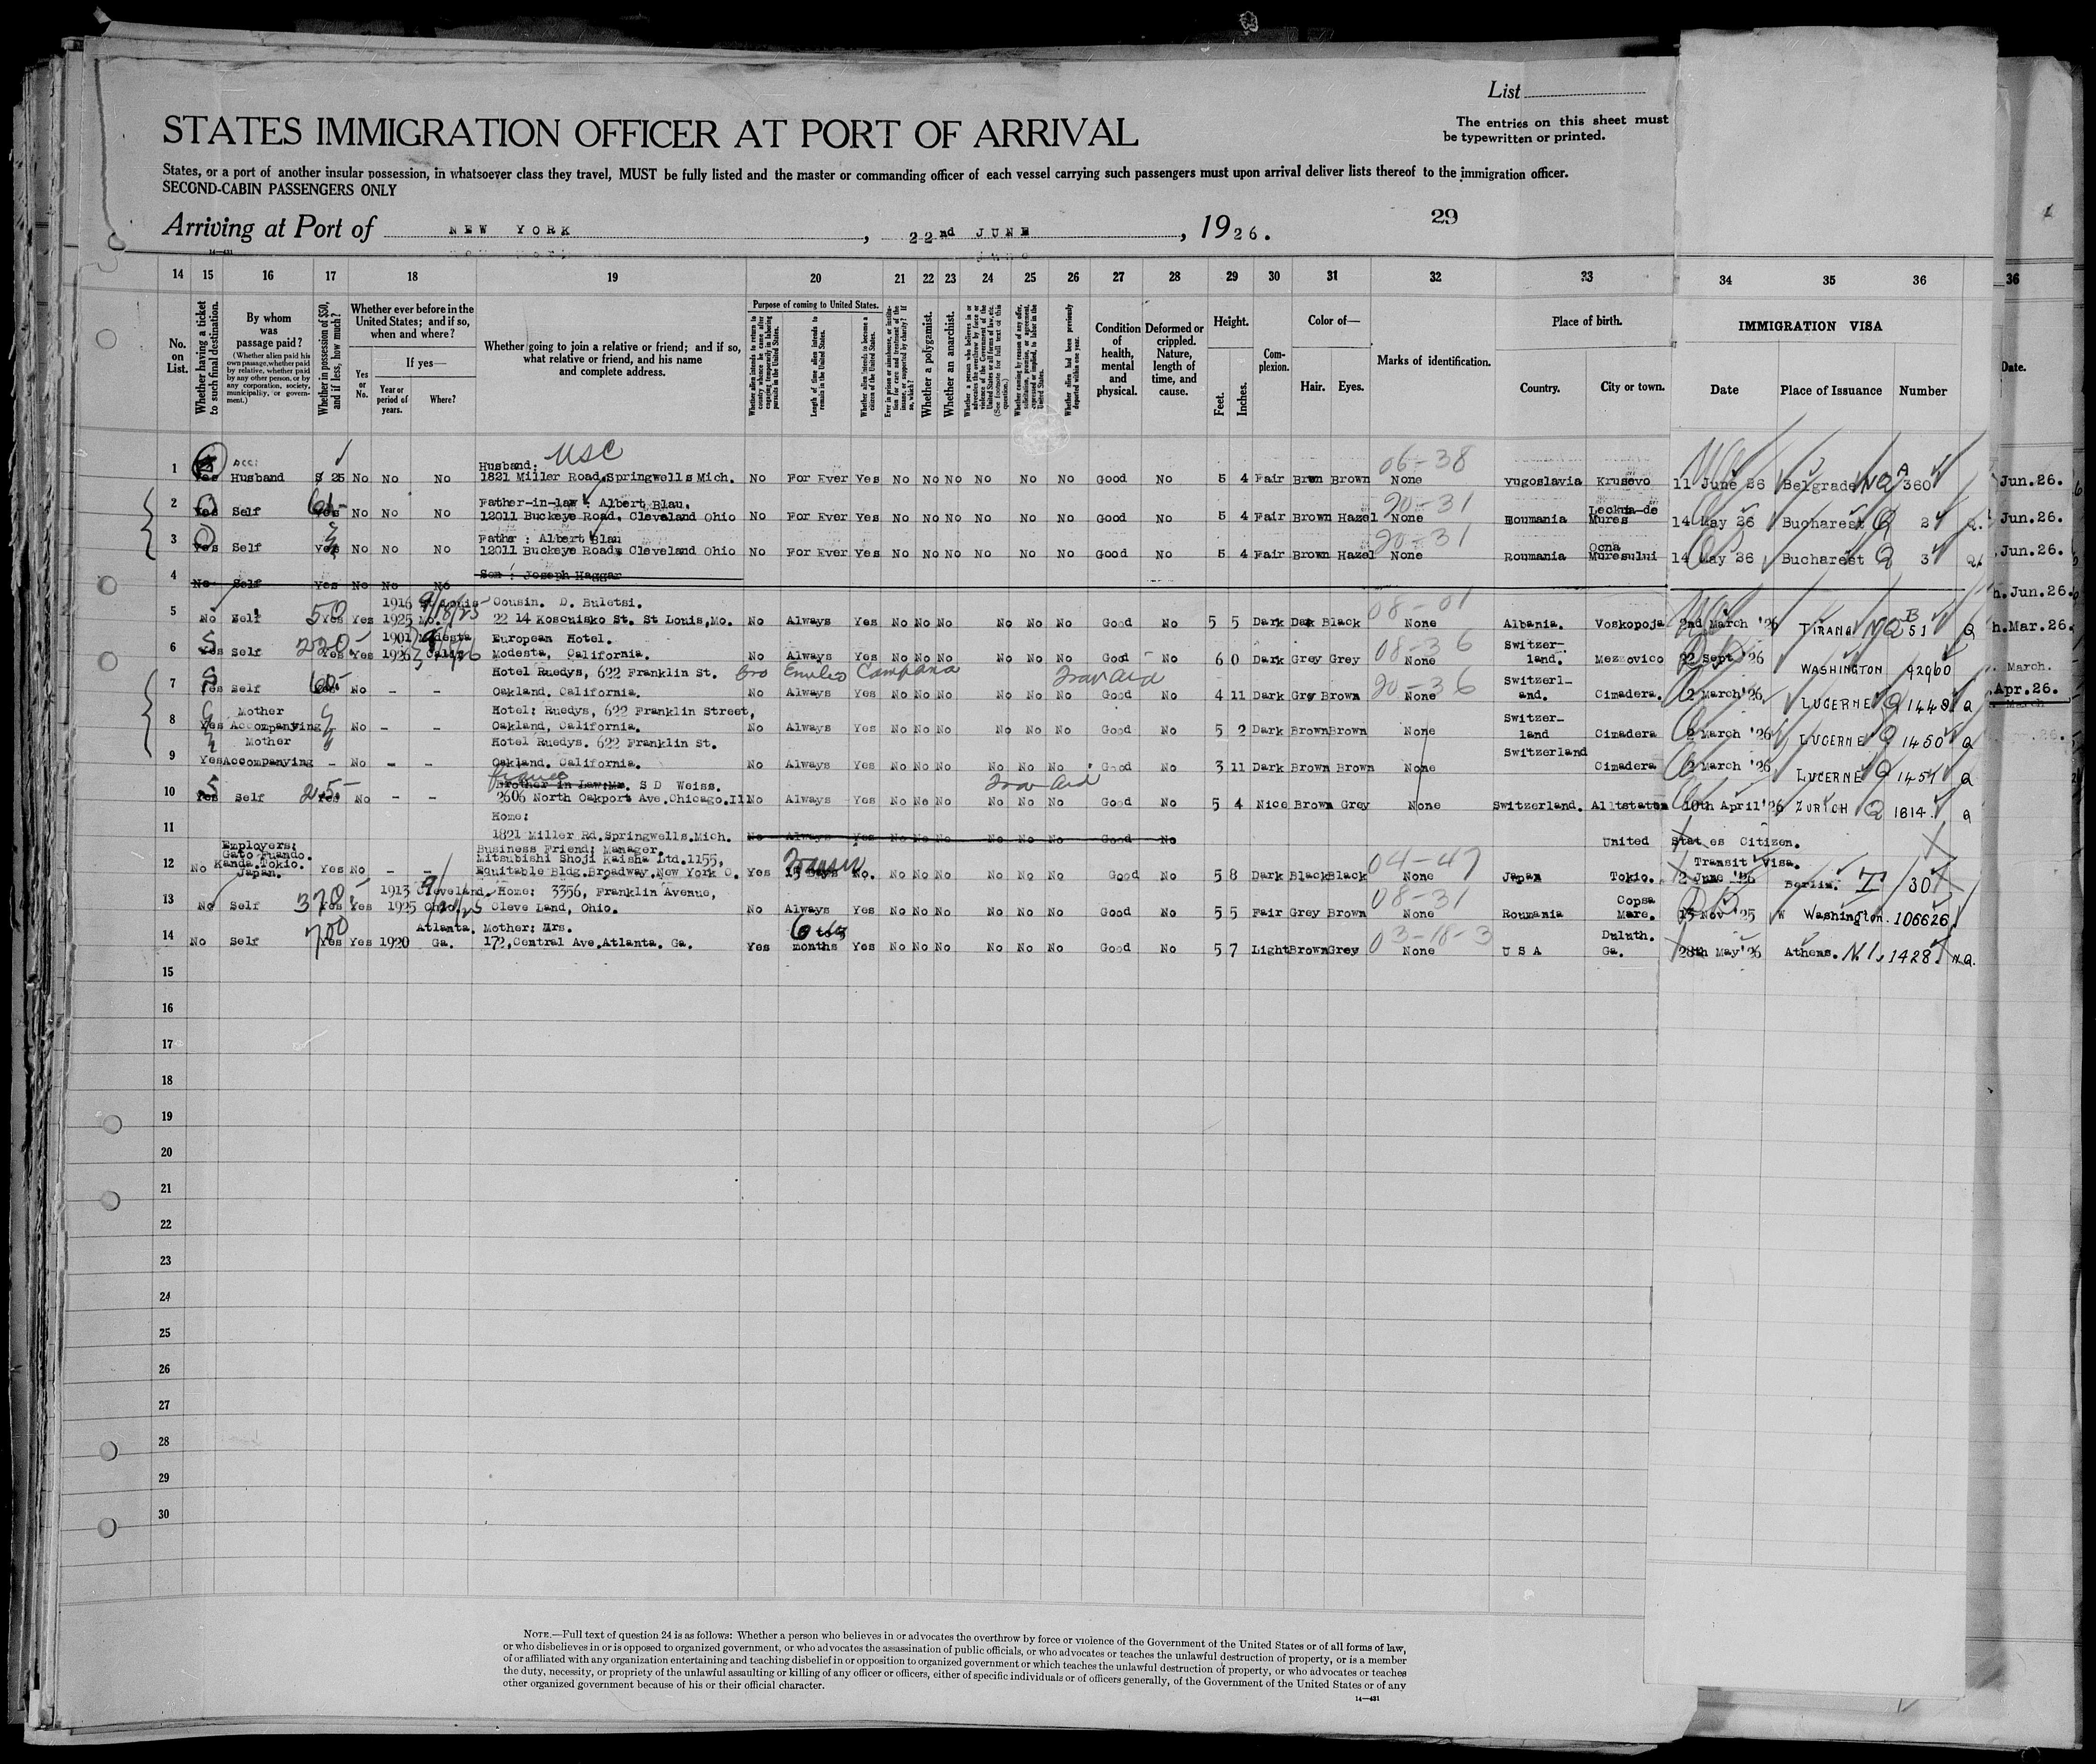 List
The entries on this sheet must
be typewritten or printed.
STATES IMMIGRATION OFFICER AT PORT OF ARRIVAL
States, or a port of another insular possession, in whatsoever class they travel, MUST be fully listed and the master or commanding officer of each vessel carrying such passengers must upon arrival deliver lists thereof to the immigration officer.
SECOND-CABIN PASSENGERS ONLY
29
Arriving at Port of NEW YORK, 22nd JUNE, 1926.
14 15 16 17 18 19 20 21 22 23 24 25 26 27 28 29 30 31 32 33 34 35 36 36
No. on List.
Whether having a ticket to such final destination.
By whom was passage paid?
(Whether alien paid his own passage, whether paid by relative, whether paid by any other person, or by any corporation, society, municipality, or government.)
Whether in possession of $50, and if less, how much?
Whether ever before in the United States; and if so, when and where?
Yes or No.
If yes—
Year or period of years.
Where?
Whether going to join a relative or friend; and if so, what relative or friend, and his name and complete address.
Purpose of coming to United States.
Length of time alien intends to remain in the United States.
Whether alien intends to become a citizen of the United States.
Whether a polygamist.
Whether an anarchist.
Condition of health, mental and physical.
Deformed or crippled. Nature, length of time, and cause.
Height.
Feet.
Inches.
Complexion.
Color of—
Hair.
Eyes.
Marks of identification.
Place of birth.
Country.
City or town.
IMMIGRATION VISA
Date
Place of Issuance
Number
Date.
USC 06-38
Husband:
1 Yes Husband $ 25 No No No 1821 Miller Road, Springwells Mich. No For Ever Yes No No No No No No Good No 5 4 Fair Brwn Brown None Yugoslavia Krusevo 11 June 26 Belgrade NQ 360 Jun.26.
Father-in-law : Albert Blau. 20-31
2 Yes Self Yes No No No 12011 Buckeye Road. Cleveland Ohio No For Ever Yes No No No No No No Good No 5 4 Fair Brown Hazel None Roumania Mures 14 May 26 Bucharest Q 2 Jun.26.
Father : Albert Blau 20-31
3 Yes Self Yes No No No 12011 Buckeye Road, Cleveland Ohio No For Ever Yes No No No No No No Good No 5 4 Fair Brown Hazel None Roumania Ocna Muresului 14 May 26 Bucharest Q 3 Jun.26.
Son : Joseph Haggar
4 No Self Yes No No No Jun.26.
1916 St Louis 9/18/25 Cousin. D. Buletsi. 08-01
5 No Self 50 Yes Yes 1925 Mo. 22 14 Kosciusko St. St Louis, Mo. No Always Yes No No No No No No Good No 5 5 Dark Dak Black None Albania. Voskopoja 2nd March '26 TIRANA NQ 51 Q h.Mar.26.
1901 Modesta European Hotel. 08-36
6 Yes Self 220 Yes Yes 1926 Calif Modesta, California. No Always Yes No No No No No No Good No 6 0 Dark Grey Grey None Switzerland. Mezzovico 22 Sept '26 WASHINGTON 92960 March.
Hotel Ruedys, 622 Franklin St. bro Emilio Campana Trav aid 20-36
7 Yes Self 60 Yes No - - Oakland. California. No Always Yes No No No No No No Good No 4 11 Dark Gry Brown None Switzerl-and. Cimadera. 2 March '26 LUCERNE Q 1449 Q Apr.26.
Mother Hotel: Ruedys, 622 Franklin Street,
8 Yes Accompanying - No - - Oakland, California. No Always Yes No No No No No No Good No 5 2 Dark Brown Brown None Switzer-land Cimadera 2 March '26 LUCERNE Q 1450 Q
Mother Hotel Ruedys. 622 Franklin St.
9 Yes Accompanying - No - - Oakland. California. No Always Yes No No No No No No Good No 3 11 Dark Brown Brown None Switzerland Cimadera 2 March '26 LUCERNE Q 1451 Q
Brother in Law: Mr. S D Weiss. Trav aid
10 Yes Self 25 Yes No - - 2606 North Oakport Ave. Chicago. Ill No Always Yes No No No No No No Good No 5 4 Nice Brown Grey None Switzerland. Alltstatten 10th April '26 ZURICH Q 1614 Q
Home:
11 1821 Miller Rd. Springwells. Mich. No Always Yes No No No No No No Good No United States Citizen.
Employers; Gato Fuando. Kanda. Tokio. Japan.
Business Friend; Manager. Transit Visa.
Mitsubishi Shoji Kaisha Ltd. 1155, 04-47
12 No Yes No - - Equitable Bldg. Broadway. New York C. Yes 15 Days No. No No No No No No Good No 5 8 Dark Black Black None Japan Tokio. 2 June '26 Berlin. T 30
1913 Cleveland. Home: 3356, Franklin Avenue, 08-31
13 No Self 378 Yes Yes 1925 Ohio. Cleve Land, Ohio. No Always Yes No No No No No No Good No 5 5 Fair Grey Brown None Roumania Copsa Mare. 15 Nov '25 W Washington. 106626
Atlanta. Mother; Mrs. 03-18-3
14 No Self 700 Yes Yes 1920 Ga. 172, Central Ave. Atlanta. Ga. Yes 6 months Yes No No No No No No Good No 5 7 Light Brown Grey None U S A Duluth. Ga. 28th May '26 Athens. N.I. 1428 N.Q.
15
16
17
18
19
20
21
22
23
24
25
26
27
28
29
30
NOTE.—Full text of question 24 is as follows: Whether a person who believes in or advocates the overthrow by force or violence of the Government of the United States or of all forms of law,
or who disbelieves in or is opposed to organized government, or who advocates the assassination of public officials, or who advocates or teaches the unlawful destruction of property, or is a member
of or affiliated with any organization entertaining and teaching disbelief in or opposition to organized government or which teaches the unlawful destruction of property, or who advocates or teaches
the duty, necessity, or propriety of the unlawful assaulting or killing of any officer or officers, either of specific individuals or of officers generally, of the Government of the United States or of any
other organized government because of his or their official character.
14—431